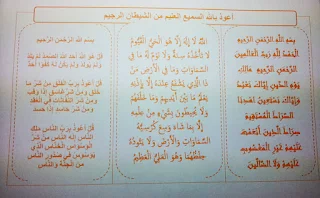 أعوذ بالله السميع العليم من الشيطان الرجيم
بِسْمِ اللَّهِ الرَّحْمَنِ الرَّحِيمِ
الْحَمْدُ لِلَّهِ رَبِّ الْعَالَمِينَ
الرَّحْمَنِ الرَّحِيمِ مَالِكِ
يَوْمِ الدِّينِ إِيَّاكَ نَعْبُدُ
وَإِيَّاكَ نَسْتَعِينُ اهْدِنَا
الصِّرَاطَ الْمُسْتَقِيمَ
صِرَاطَ الَّذِينَ أَنْعَمْتَ
عَلَيْهِمْ غَيْرِ الْمَغْضُوبِ
عَلَيْهِمْ وَلَا الضَّالِّينَ
اللَّهُ لَا إِلَهَ إِلَّا هُوَ الْحَيُّ الْقَيُّومُ
لَا تَأْخُذُهُ سِنَةٌ وَلَا نَوْمٌ لَهُ مَا فِي
السَّمَاوَاتِ وَمَا فِي الْأَرْضِ مَنْ
ذَا الَّذِي يَشْفَعُ عِنْدَهُ إِلَّا بِإِذْنِهِ
يَعْلَمُ مَا بَيْنَ أَيْدِيهِمْ وَمَا خَلْفَهُمْ
وَلَا يُحِيطُونَ بِشَيْءٍ مِنْ عِلْمِهِ
إِلَّا بِمَا شَاءَ وَسِعَ كُرْسِيُّهُ
السَّمَاوَاتِ وَالْأَرْضَ وَلَا يَئُودُهُ
حِفْظُهُمَا وَهُوَ الْعَلِيُّ الْعَظِيمُ
بسم الله الرحمن الرحيم
قُلْ هُوَ اللَّهُ أَحَدٌ اللَّهُ الصَّمَدُ لَمْ يَلِدْ
وَلَمْ يُولَدْ وَلَمْ يَكُنْ لَهُ كُفُوًا أَحَدٌ
قُلْ أَعُوذُ بِرَبِّ الْفَلَقِ مِنْ شَرِّ مَا
خَلَقَ وَمِنْ شَرِّ غَاسِقٍ إِذَا وَقَبَ
وَمِنْ شَرِّ النَّفَّاثَاتِ فِي الْعُقَدِ
وَمِنْ شَرِّ حَاسِدٍ إِذَا حَسَدَ
قُلْ أَعُوذُ بِرَبِّ النَّاسِ مَلِكِ
النَّاسِ إِلَهِ النَّاسِ مِنْ شَرِّ
الْوَسْوَاسِ الْخَنَّاسِ الَّذِي
يُوَسْوِسُ فِي صُدُورِ النَّاسِ
مِنَ الْجِنَّةِ وَالنَّاسِ